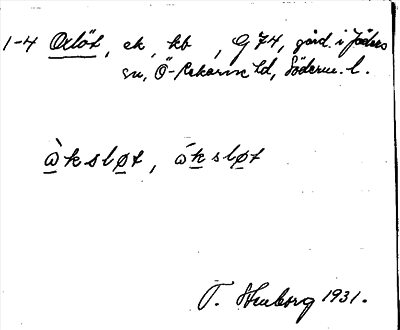 1-4 Oxlöt, ek, kb, G 74, gård i Jäders
sn, Ö-Rekarne hd, Söderm. l.
ὼksløt, ώksløt
T. 1931.